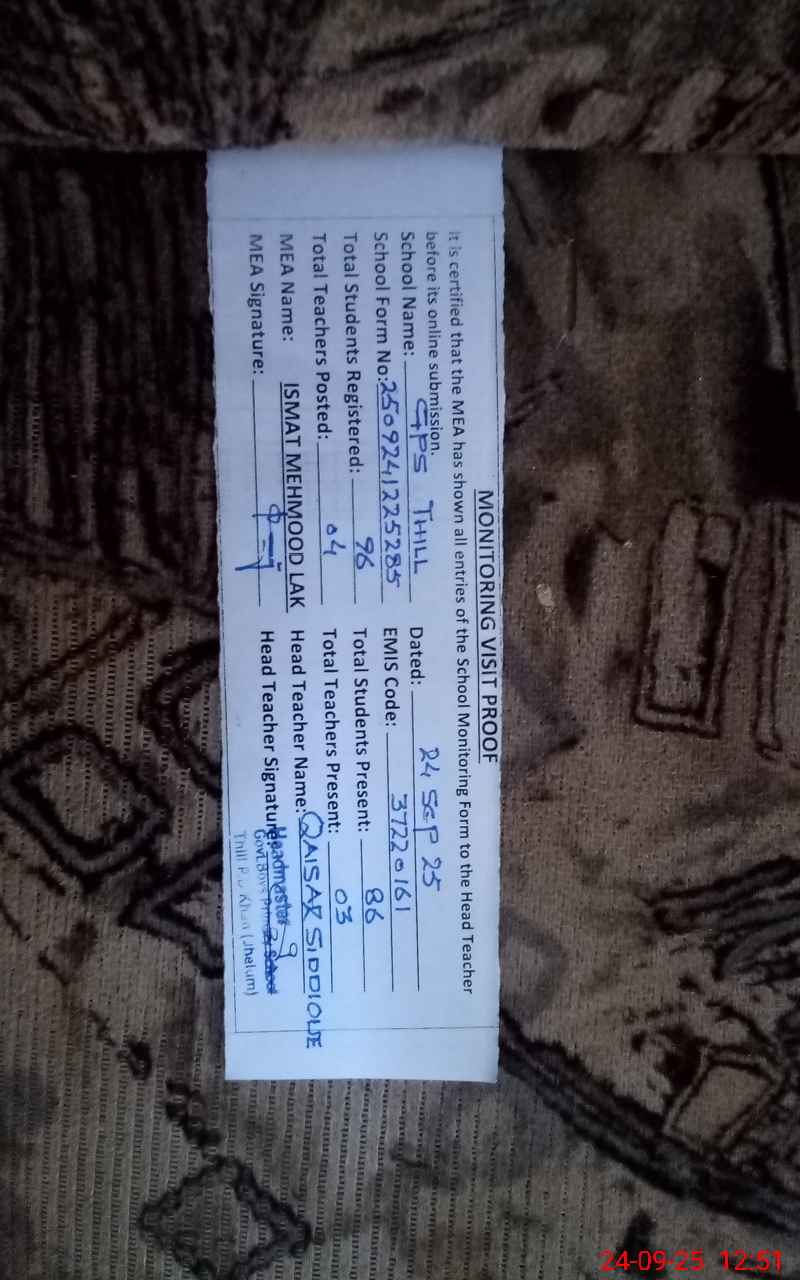 MONITORING VISIT PROOF
It is certified that the MEA has shown all entries of the School Monitoring Form to the Head Teacher
before its online submission.
School Name: GPS THILL Dated: 24 SEP 25
School Form No: 2509241225285 EMIS Code: 37220161
Total Students Registered: 96 Total Students Present: 86
Total Teachers Posted: 04 Total Teachers Present: 03
MEA Name: ISMAT MEHMOOD LAK Head Teacher Name: QAISAR SIDDIQUE
MEA Signature: Head Teacher Signature:
Headmaster
Govt. Boys Primary School
Thill P.D Khan (Jhelum)
24-09-25 12:51